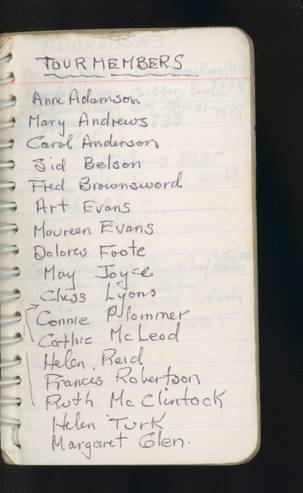 TOUR MEMBERS
Anne Adamson
Mary Andrews
Carol Anderson
Sid Belson
Fred Brownsword
Art Evans
Maureen Evans
Dolores Foote
May Joyce
Chess Lyons
Connie Plommer
Cathie McLeod
Helen Reid
Francis Robertson
Ruth McClintock
Helen Turk
Margaret Glen.